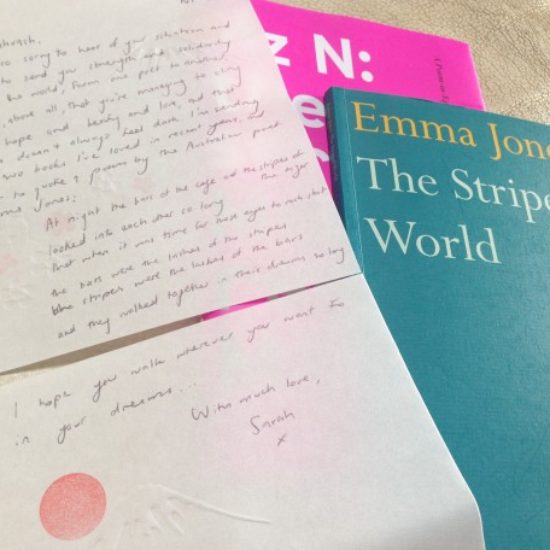 so sorry to hear of your situation and
to send you strength and solidarity
the world, from one poet to another,
above all, that you're managing to cling
hope and beauty and love, and that
doesn't always feel dark. I'm sending
two books I've loved in recent years, and
to quote a poem by the Australian poet
Jones:
At night the bars of the cage and the stripes of
the tiger
looked into each other so long
that when it was time for those eyes to rock shut
the bars were the lashes of the stripes
the stripes were the lashes of the bars
and they walked together in their dreams so long
I hope you walk wherever you want to
in your dreams...
With much love,
Sarah
x
z N:
Emma Jone
The Stripe
World